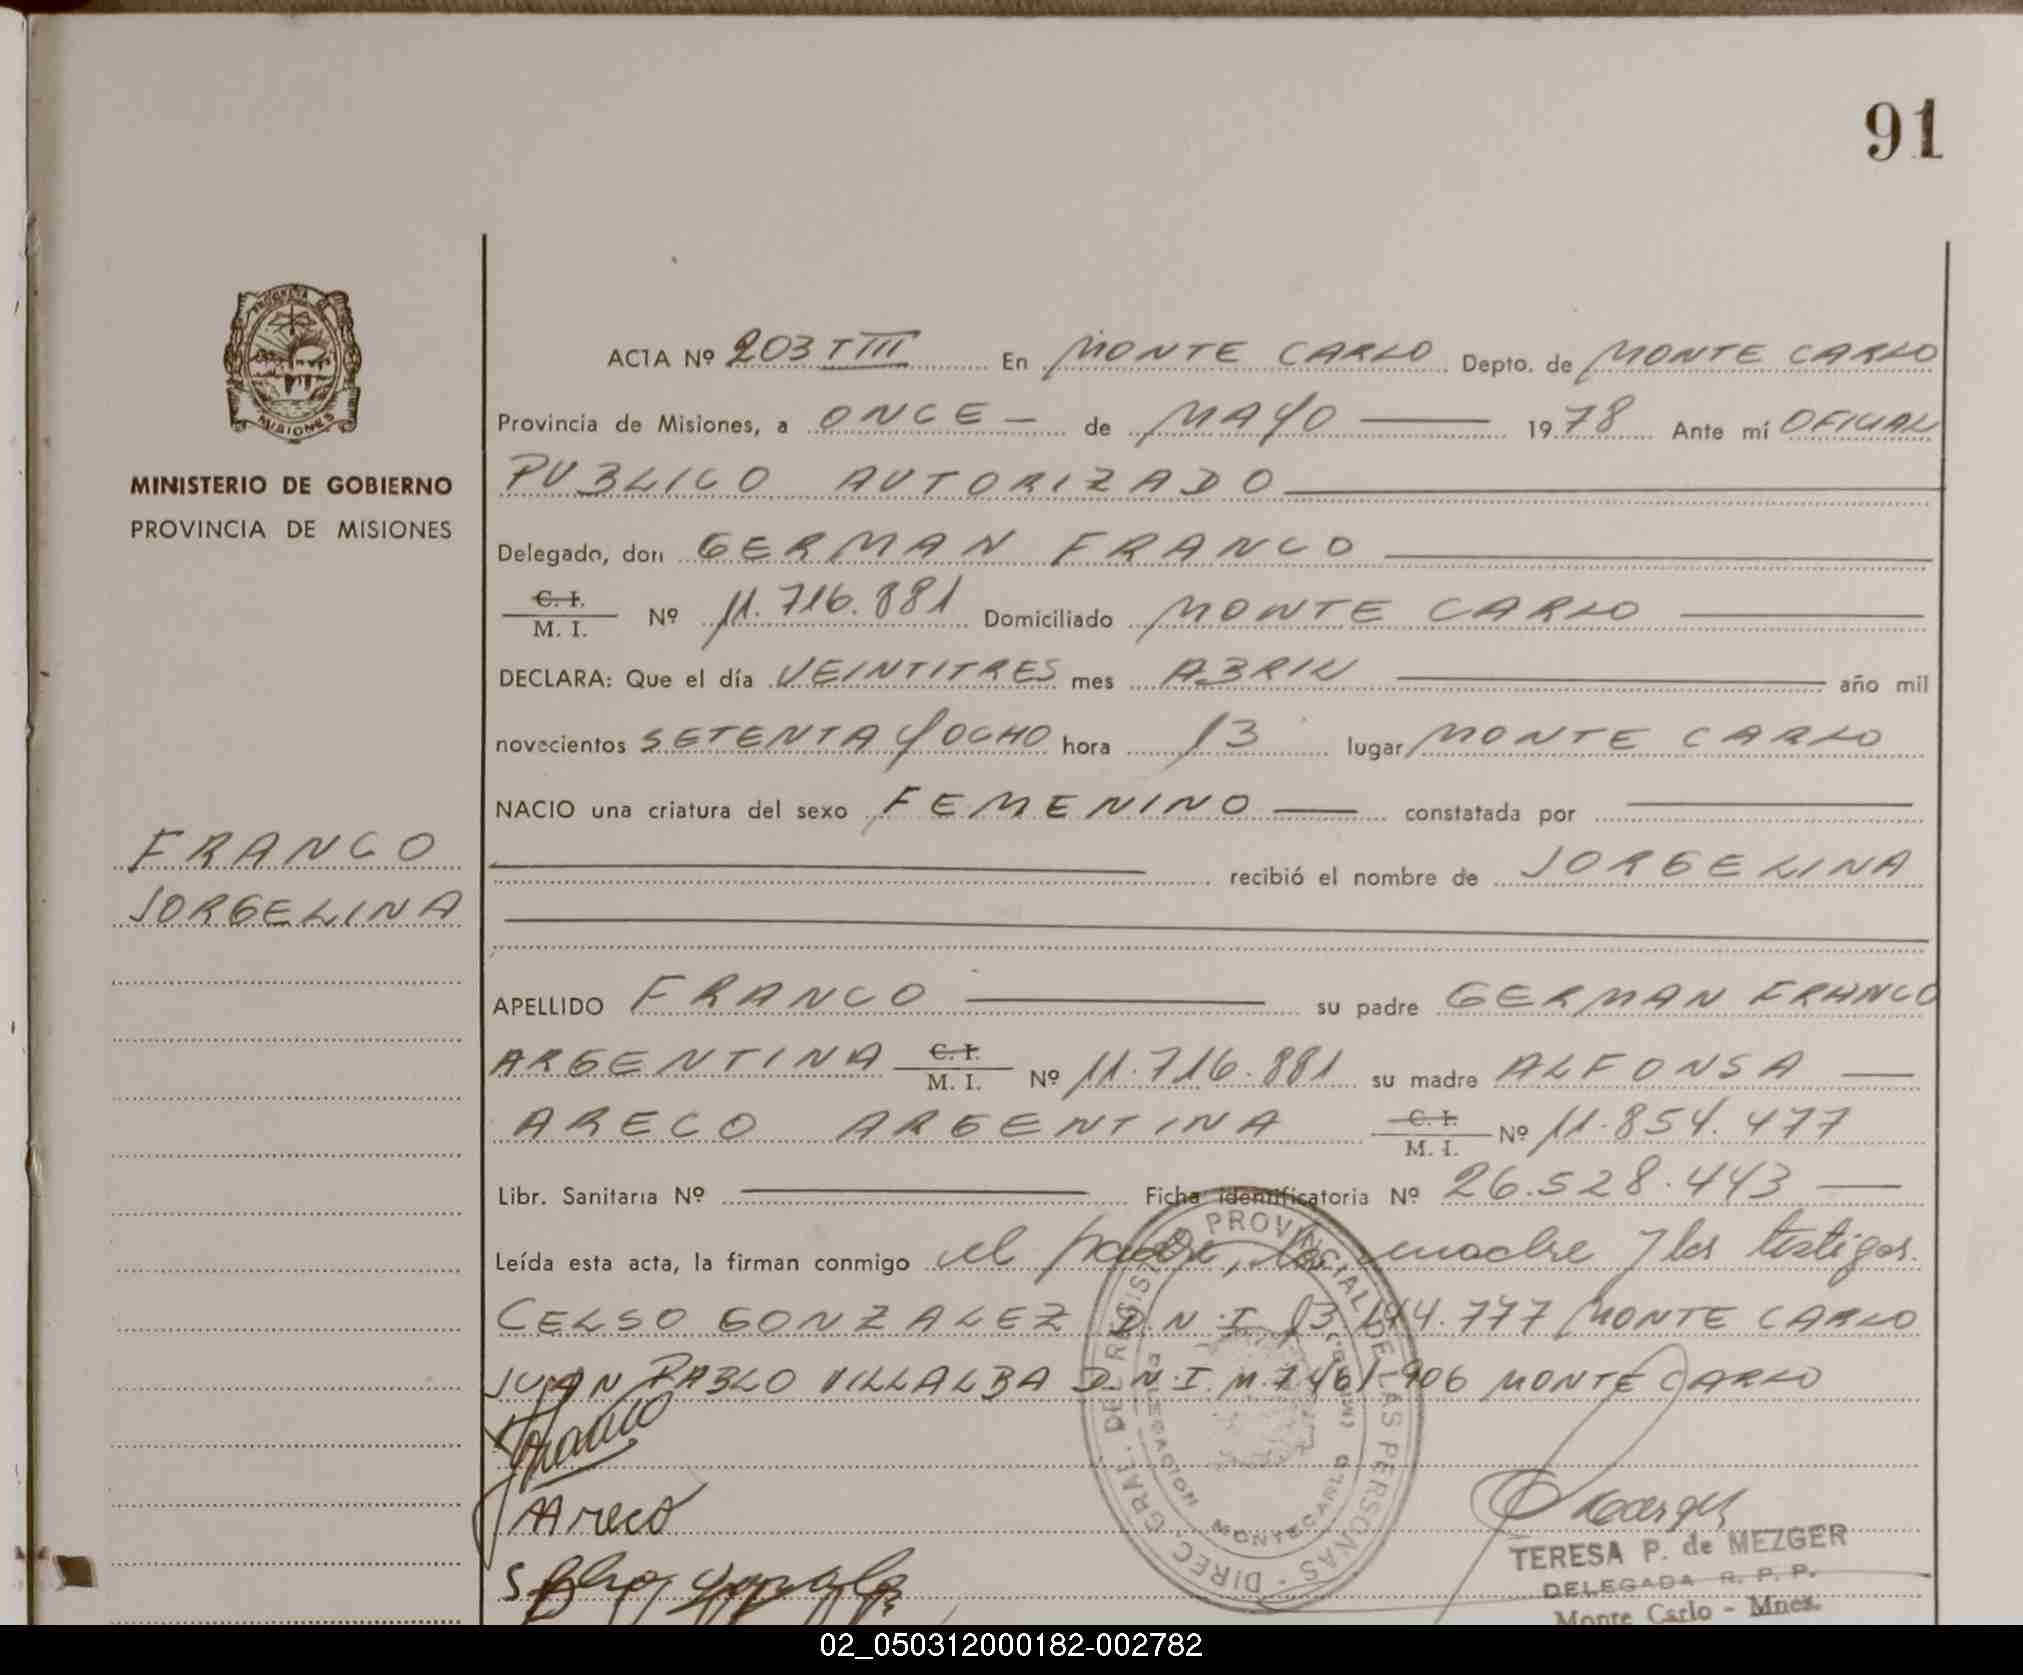 91
ACTA Nº 203 TIII En MONTE CARLO Depto. de MONTE CARLO
Provincia de Misiones, a ONCE — de MAYO — 1978 Ante mí OFICIAL
PUBLICO AUTORIZADO
MINISTERIO DE GOBIERNO
PROVINCIA DE MISIONES
Delegado, don GERMAN FRANCO
C. I. / M. I. Nº 11.716.881 Domiciliado MONTE CARLO
DECLARA: Que el día VEINTITRES mes ABRIL año mil
novecientos SETENTA Y OCHO hora 13 lugar MONTE CARLO
NACIO una criatura del sexo FEMENINO — constatada por
FRANCO
JORGELINA
recibió el nombre de JORGELINA
APELLIDO FRANCO su padre GERMAN FRANCO
ARGENTINA C. I. / M. I. Nº 11.716.881 su madre ALFONSA —
ARECO ARGENTINA C. I. / M. I. Nº 11.854.477
Libr. Sanitaria Nº — Ficha identificatoria Nº 26.528.443 —
Leída esta acta, la firman conmigo el padre, la madre y los testigos.
CELSO GONZALEZ D.N.I. 13.144.777 MONTE CARLO
JUAN PABLO VILLALBA D.N.I. M. 906 MONTE CARLO
Franco
AAreco
DIREC. GRAL. DEL REGISTRO PROVINCIAL DE LAS PERSONAS
DELEGACION MONTECARLO
TERESA P. de MEZGER
DELEGADA R. P. P.
Monte Carlo - Mnes.
PROVINCIA DE
MISIONES
02_050312000182-002782